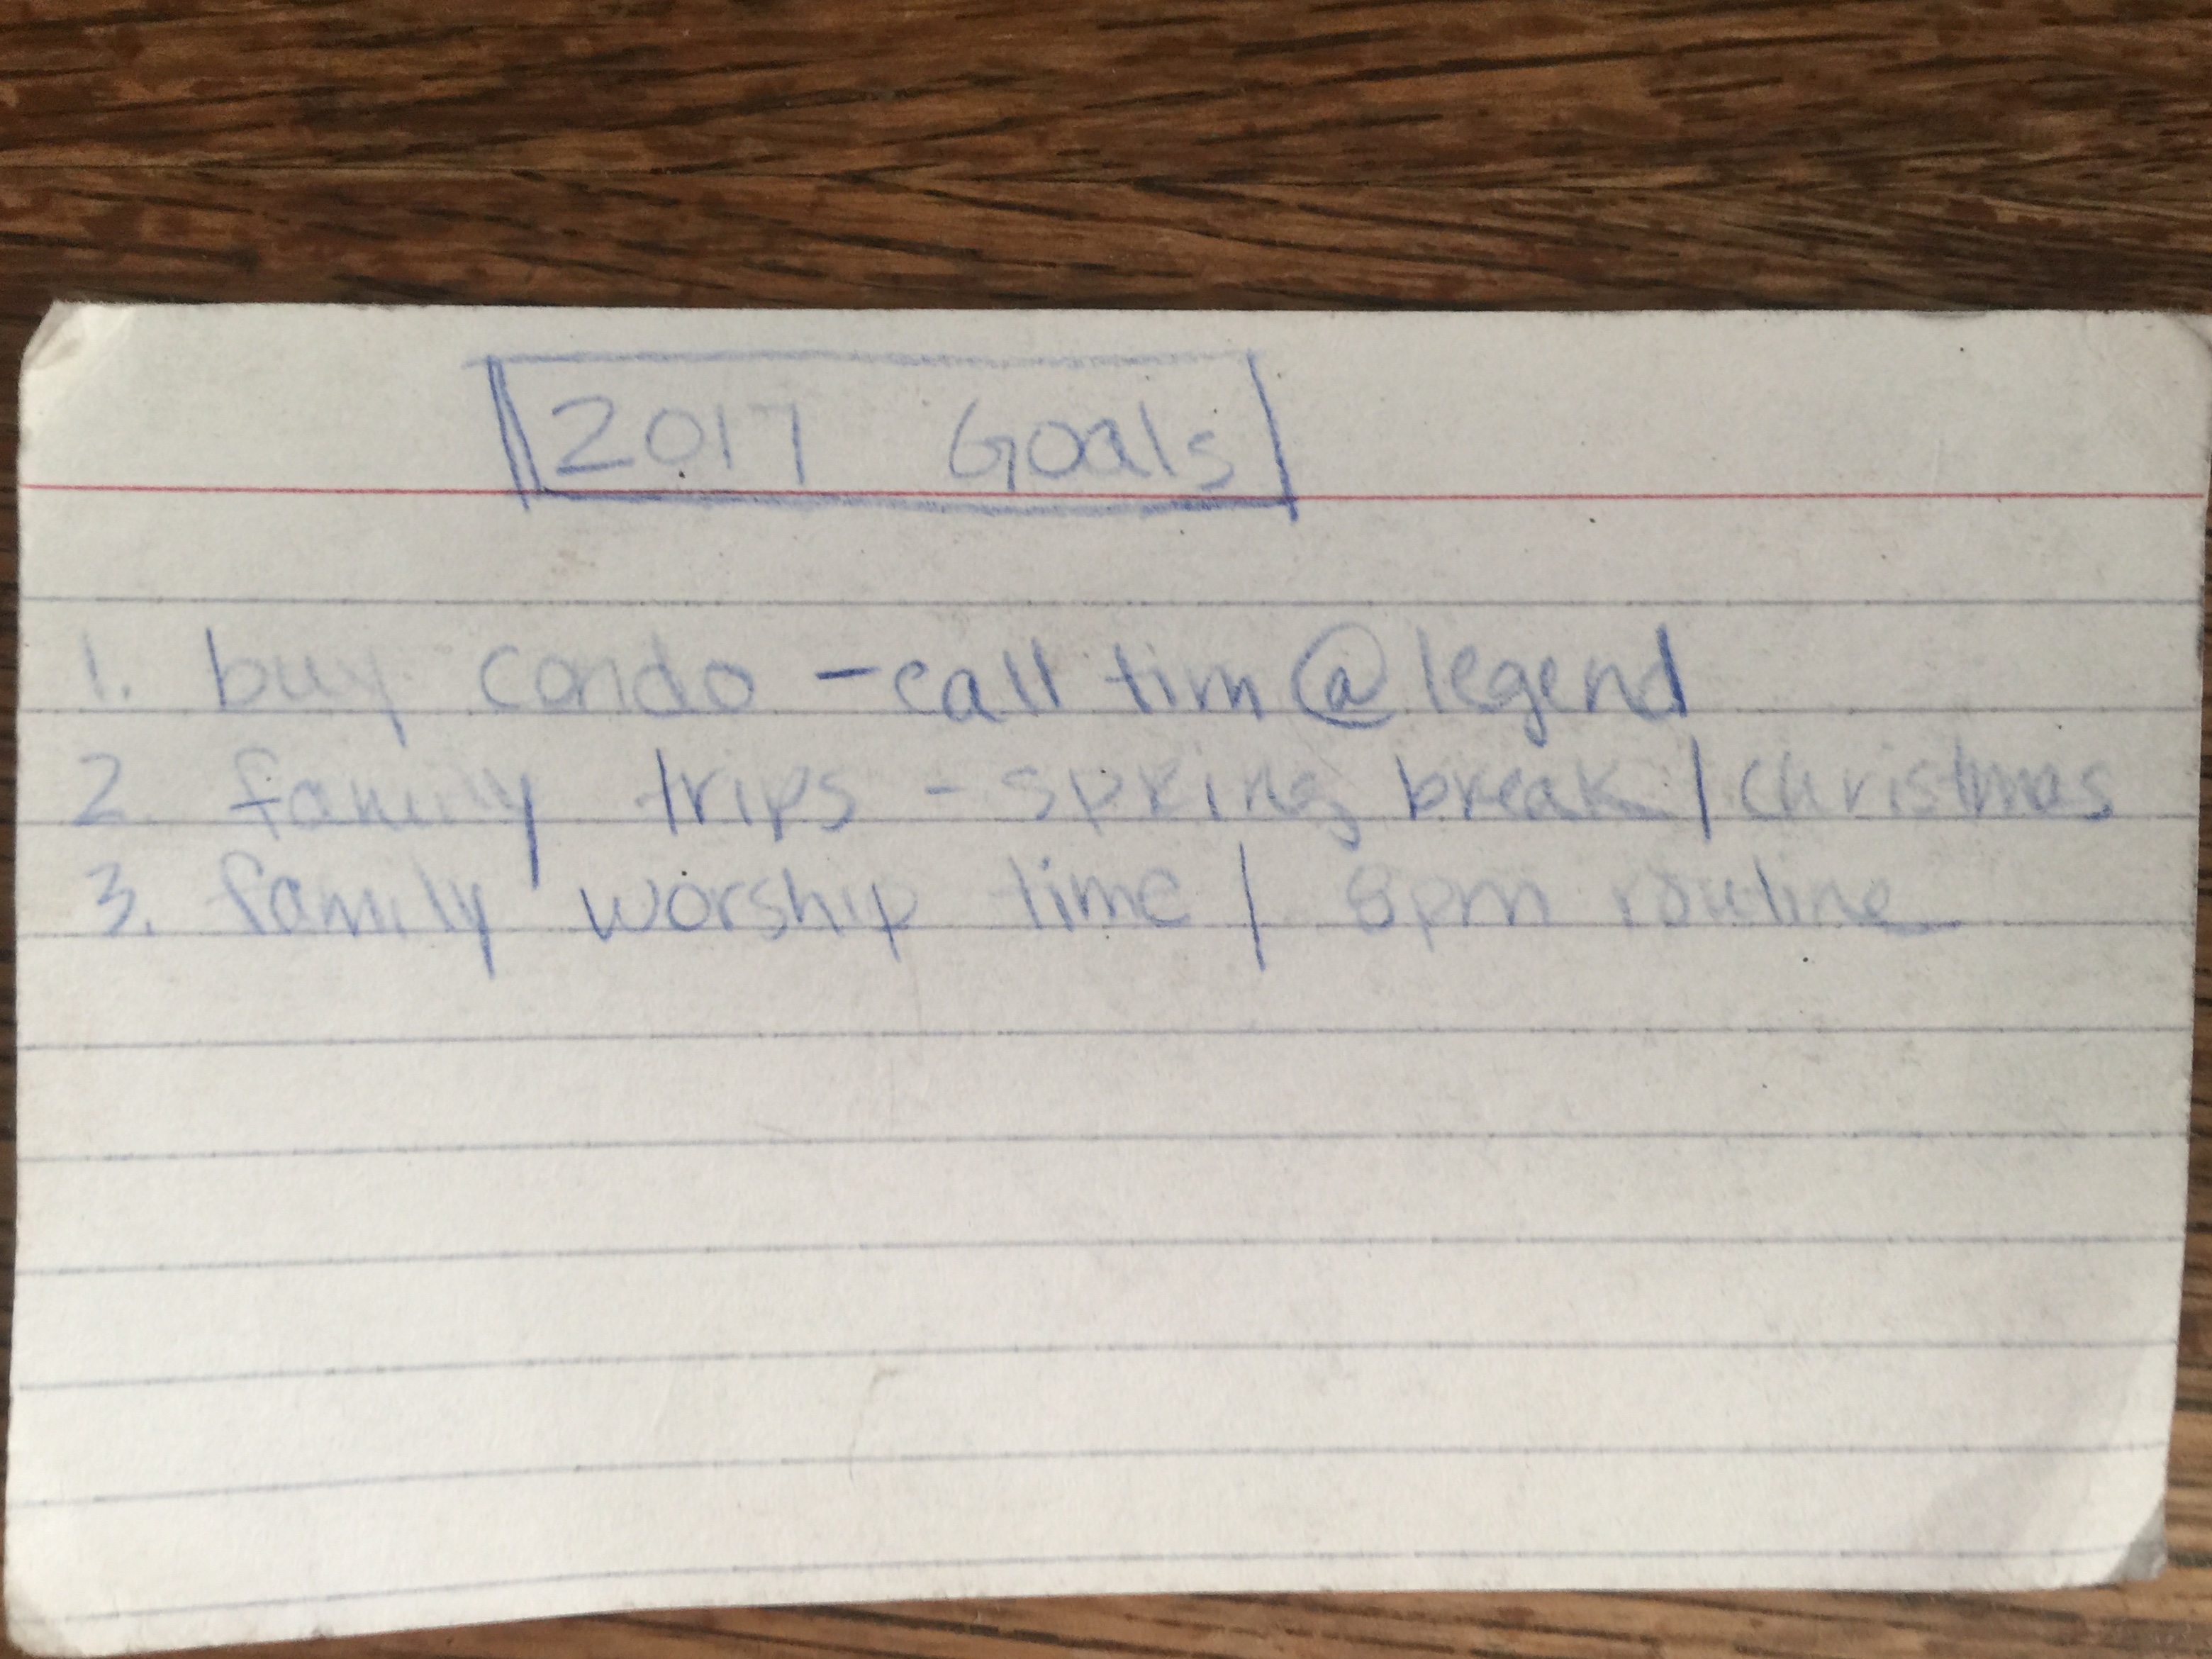 2017 Goals
1. buy condo - call tim @ legend
2. family trips - spring break / christmas
3. family worship time / 8pm routine